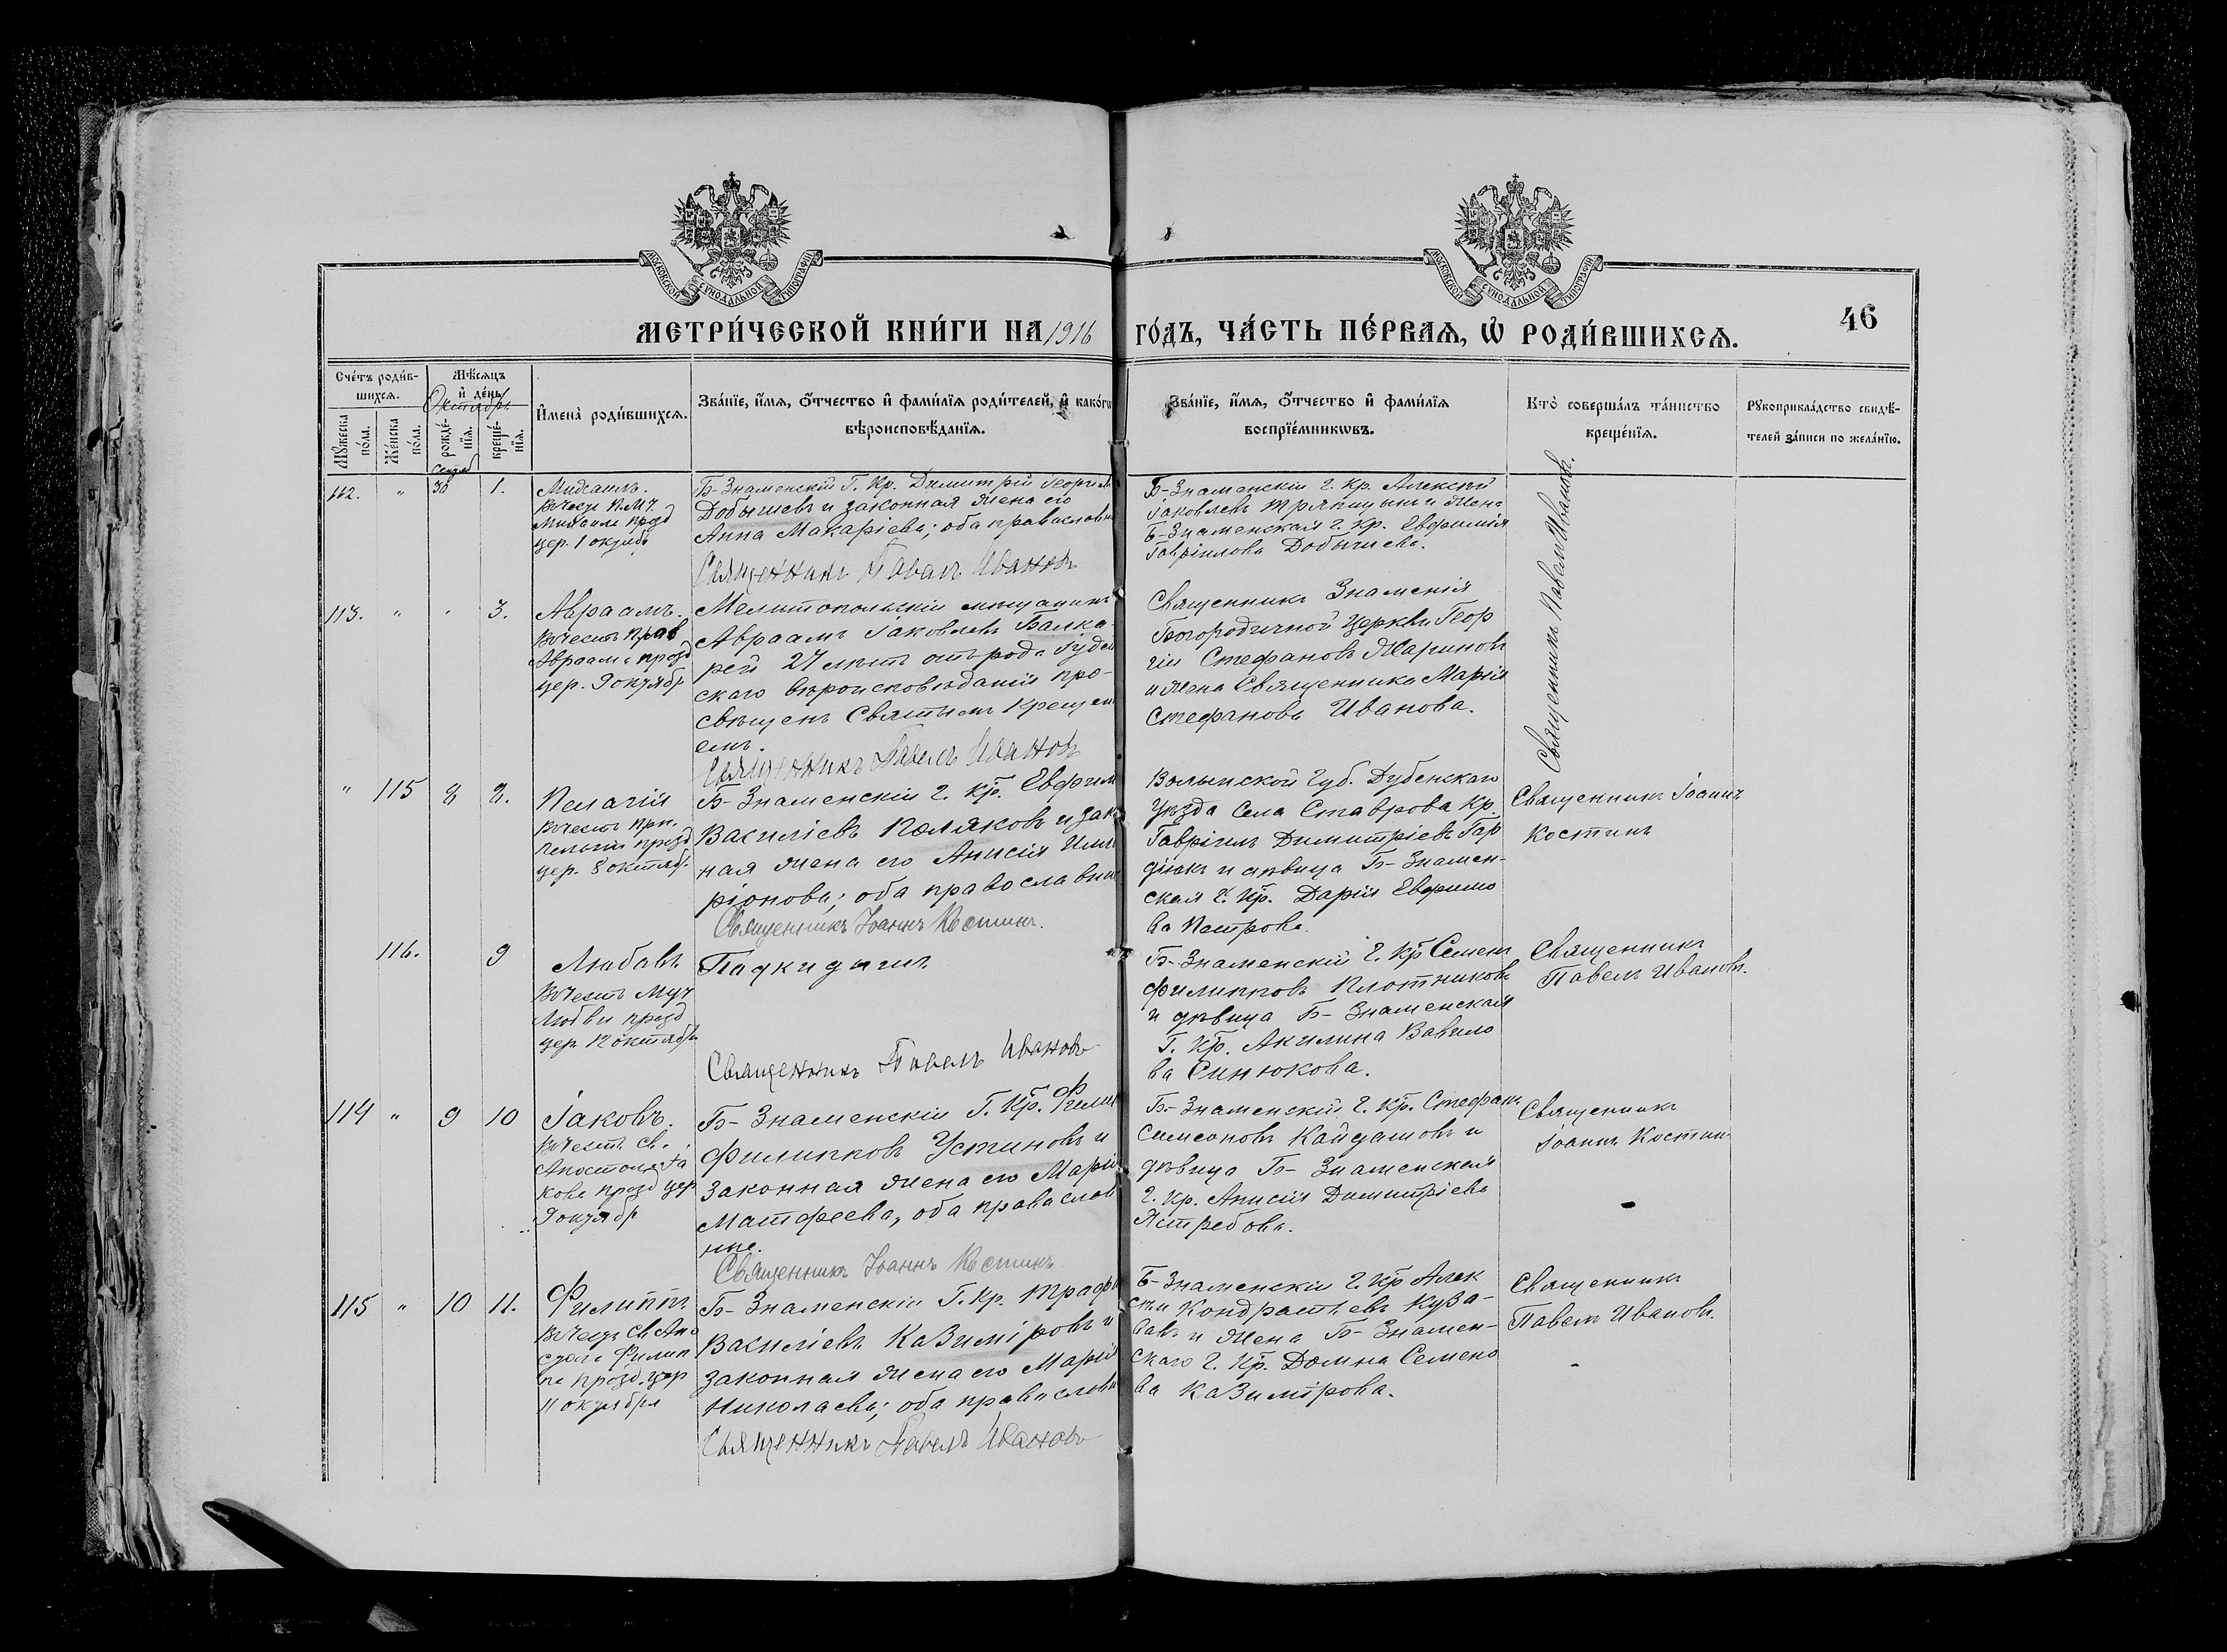 МОСКОВСКОЙ СѴНОДАЛЬНОЙ ТИПОГРАФІИ
МОСКОВСКОЙ СѴНОДАЛЬНОЙ ТИПОГРАФІИ
МЕТРИ́ЧЕСКОЙ КНИ́ГИ НА 1916 ГО́ДЪ, ЧА́СТЬ ПЕ́РВАѦ, Ѡ҆ РОДИ́ВШИХСѦ.
46
Сче́тъ роди́в-
шихсѧ.
Мꙋжеска по́ла.
Же́нска по́ла.
Мѣ́сѧцъ
и҆ де́нь.
Октябрь
рожде́-нїѧ.
креще́-нїѧ.
И҆мена̀ роди́вшихсѧ.
Зва́нїе, и҆́мѧ, ѻ҆́тчество и҆ фами́лїѧ роди́телей, и҆ како́гѡ
вѣроисповѣ́данїѧ.
Зва́нїе, и҆́мѧ, ѻ҆́тчество и҆ фами́лїѧ
воспрїе́мникѡвъ.
Кто̀ соверша́лъ та́инство
креще́нїѧ.
Рꙋкоприкла́дство свидѣ́-
телей за́писи по жела́нїю.
112. " 30 1.
Михаилъ.
Михаила празд
цер. 1 октяб
Б-Знаменскій Г. Кр. Димитрій Георгіев
Добышевъ и законная жена его
Анна Макаріева; оба православн
Священникъ Павелъ Ивановъ
Б-Знаменскій г. Кр. Алексѣй
Іаковлевъ Тряпицынъ и жена
Б-Знаменскаго г. Кр. Евфимія
Гавріилова Добышева.
Священникъ Павелъ Ивановъ.
113. " " 3.
Авраамъ.
Въ честь Прав
Авраама празд
цер. 9 октябр
Мелитопольскій мѣщанинъ
Авраамъ Іаковлевъ Балка-
рей 27 лѣтъ отъ рода Іудей
скаго вѣроисповѣданія про-
свѣщенъ Святымъ Крещен
емъ.
Священникъ Павелъ Ивановъ
Священникъ Знаменія
Богородичной Церкви Геор
гій Стефановъ Жариновъ
и жена Священника Марія
Стефанова Иванова.
" 115 2 2.
Пелагія
Въ честь Прп.
Пелагіи празд
цер. 8 октяб.
Б-Знаменскій г. Кр. Евфим
Василіевъ Поляковъ и зак
ная жена его Анисія Ила
ріонова; оба православны
Священникъ Іоаннъ Костинъ.
Волынской Губ. Дубенскаго
Уѣзда Села Ставрова Кр.
Гавріилъ Димитріевъ Гор
діюкъ и дѣвица Б-Знамен-
ская г. Кр. Дарія Евфимо
ва Петрова.
Священникъ Іоаннъ
Костинъ
116. 9
Любовь
Въ честь Муч
Любви празд
цер. 12 октябр
Падкидышъ
Священникъ Павелъ Ивановъ
Б-Знаменскій г. Кр Семенъ
Филипповъ Плотниковъ
и дѣвица Б-Знаменская
Г. Кр. Акилина Вавило
ва Синюкова.
Священникъ
Павелъ Ивановъ.
114 " 9 10
Іаковъ.
Въ честь Св.
Апостола Іа
кова празд цер
9 октябр
Б-Знаменскій Г. Кр. Филип
Филипповъ Устиновъ и
законная жена его Марія
Матфеева, оба православ
ные.
Священникъ Іоаннъ Костинъ
Б-Знаменскій г. Кр. Стефанъ
Симеоновъ Кайдашовъ и
дѣвица Б-Знаменская
г. Кр. Анисія Димитріева
Ястребова.
Священникъ
Іоаннъ Костинъ
115 " 10 11.
Филиппъ
Въ честь Св. Апо
стола Филип
па празд. цер
11 октября
Б-Знаменскій Г. Кр. Трофи
Василіевъ Казиміровъ и
законная жена его Марія
Николаева; оба православн
Священникъ Павелъ Ивановъ
Б-Знаменскій г. Кр Алек
сѣй Кондратьевъ Кува-
евъ и жена Б-Знамен-
скаго г. Кр. Домна Семено
ва Казимірова.
Священникъ
Павелъ Ивановъ.